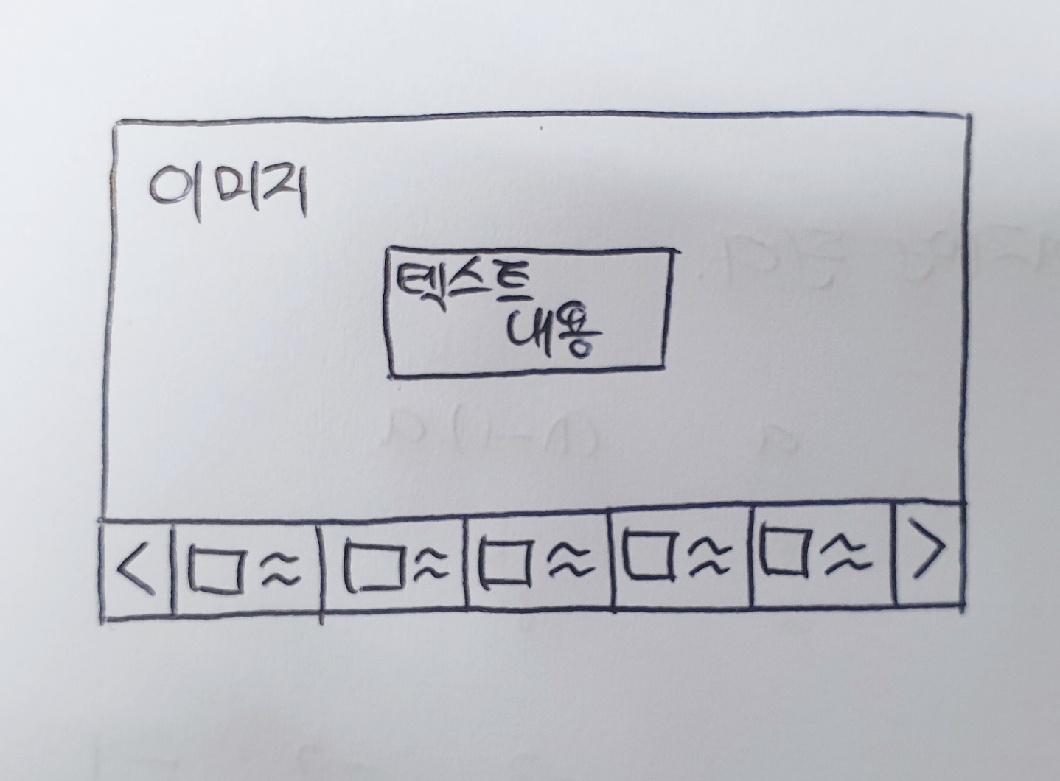 이미지
텍스트
내용
< >